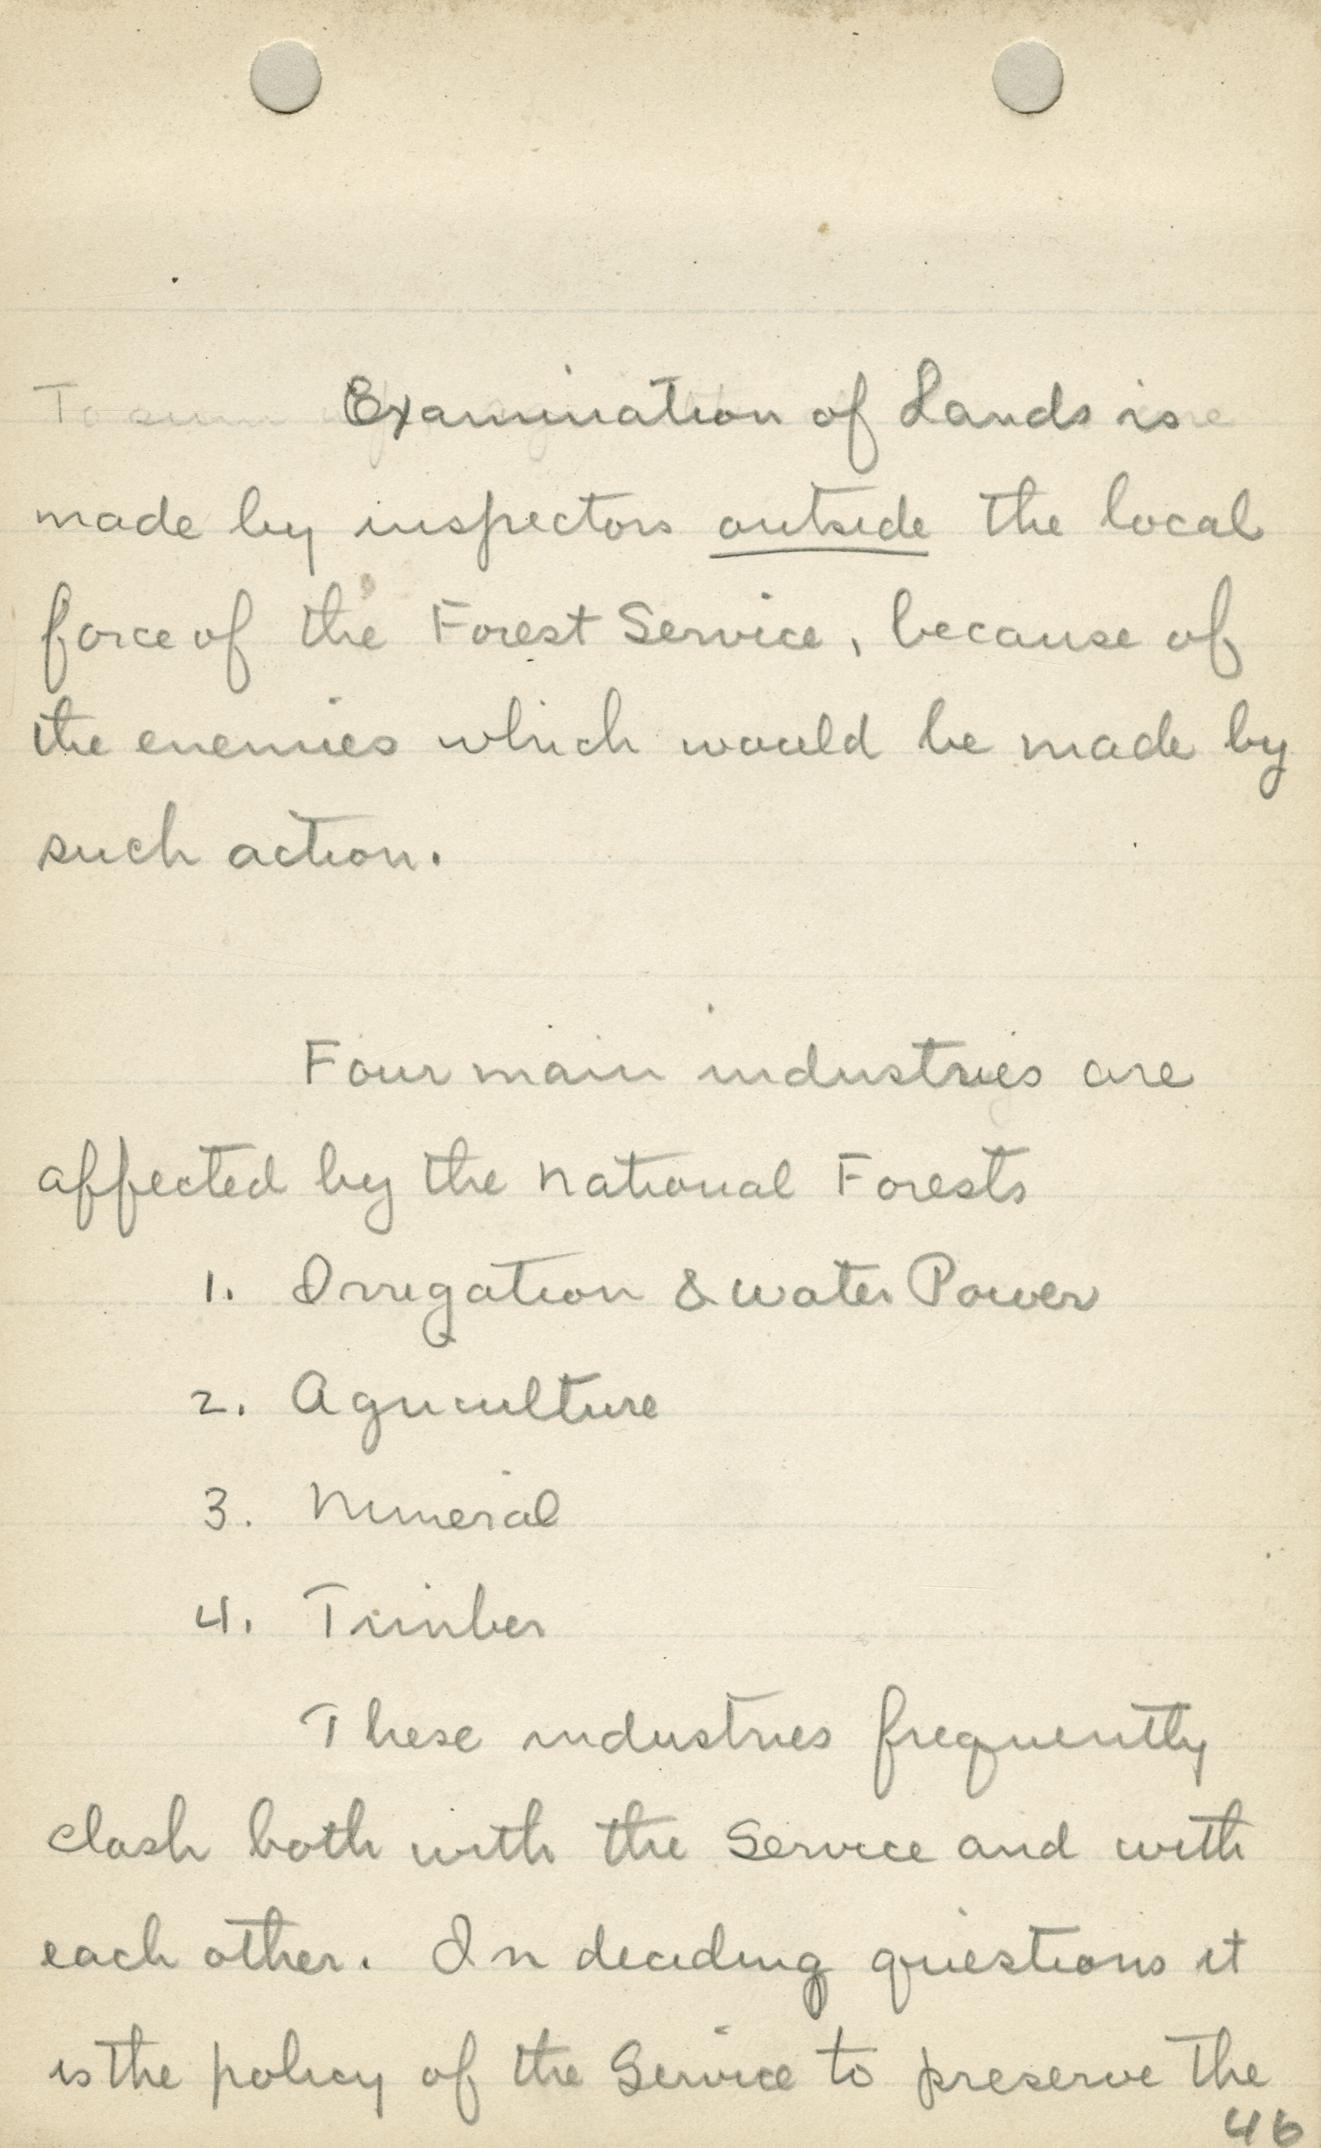 To sum Examination of Lands is
made by inspectors outside the local
force of the Forest Service, because of
the enemies which would be made by
such action.
Four main industries are
affected by the National Forests
1. Irrigation & Water Power
2. Agriculture
3. Mineral
4. Timber
These industries frequently
clash both with the Service and with
each other. In deciding questions it
is the policy of the Service to preserve the
46